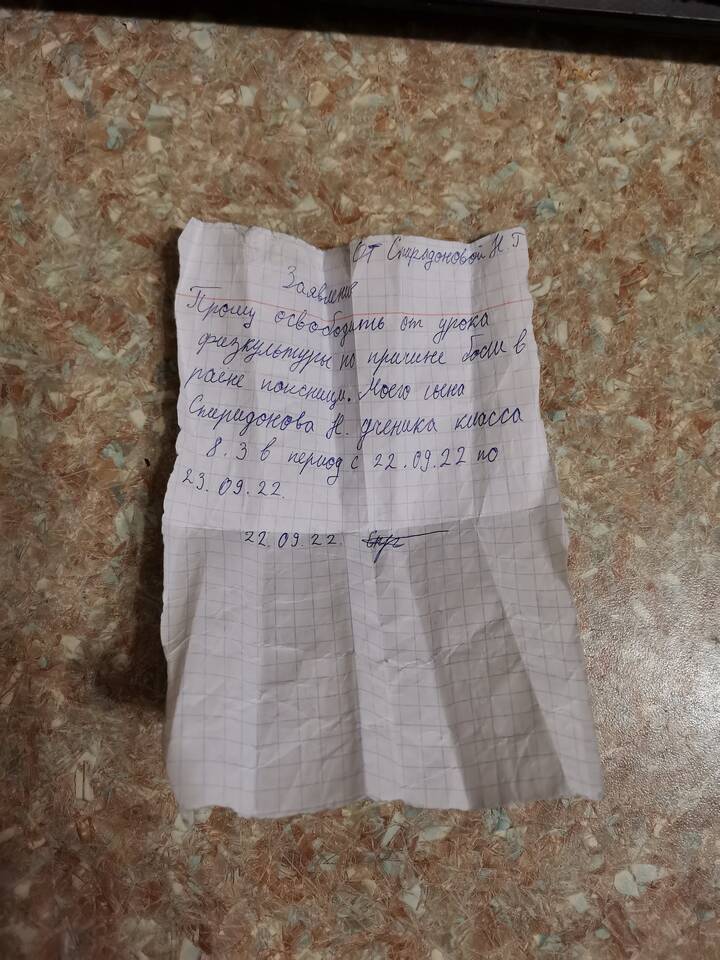 От Спиридоновой Н.Г
Заявление
Прошу освободить от урока
физкультуры по причине боли в
раене поясници. Моего сына
Спиридонова Н. ученика класса
8.3 в период с 22.09.22 по
23.09.22.
22.09.22.